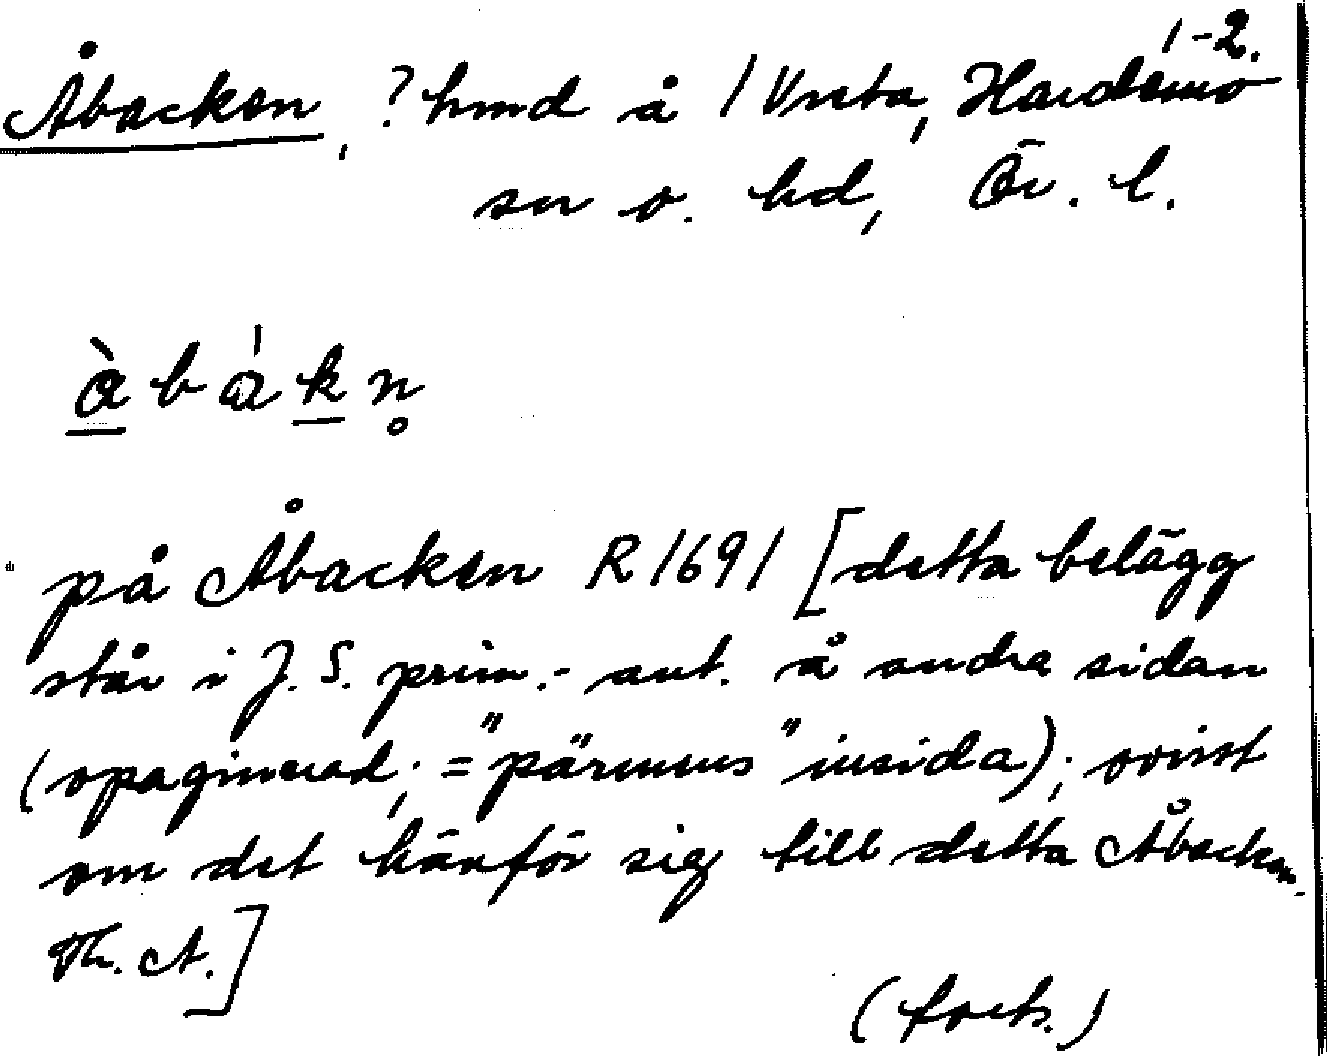 1-2.
Åbacken, ? hmd å 1 Vreta, Hardemo
sn o. hd, Ör. l.
à b á k n̥
på Åbacken R 1691 [detta belägg
står i J. S. prim.- ant. å andra sidan
(opaginerad; = "pärmens" insida); ovisst
om det hänför sig till detta Åbacken.
Th. A.]
(forts.)